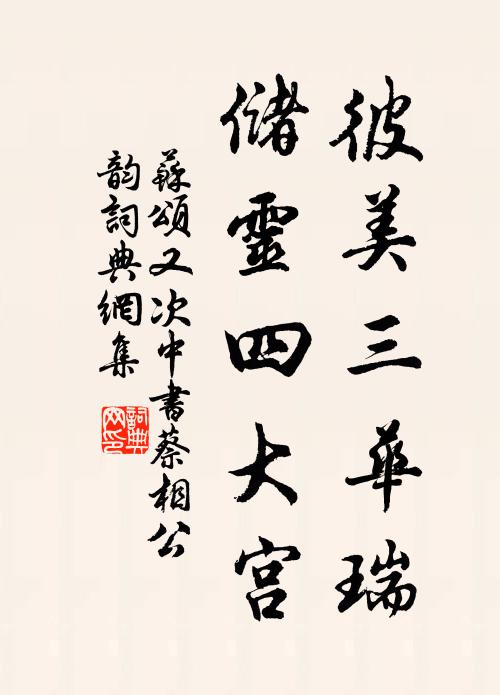 彼美三華瑞
儲靈四大宮
蘇頌又次中書蔡相公
韵詞典網集
詞典网印